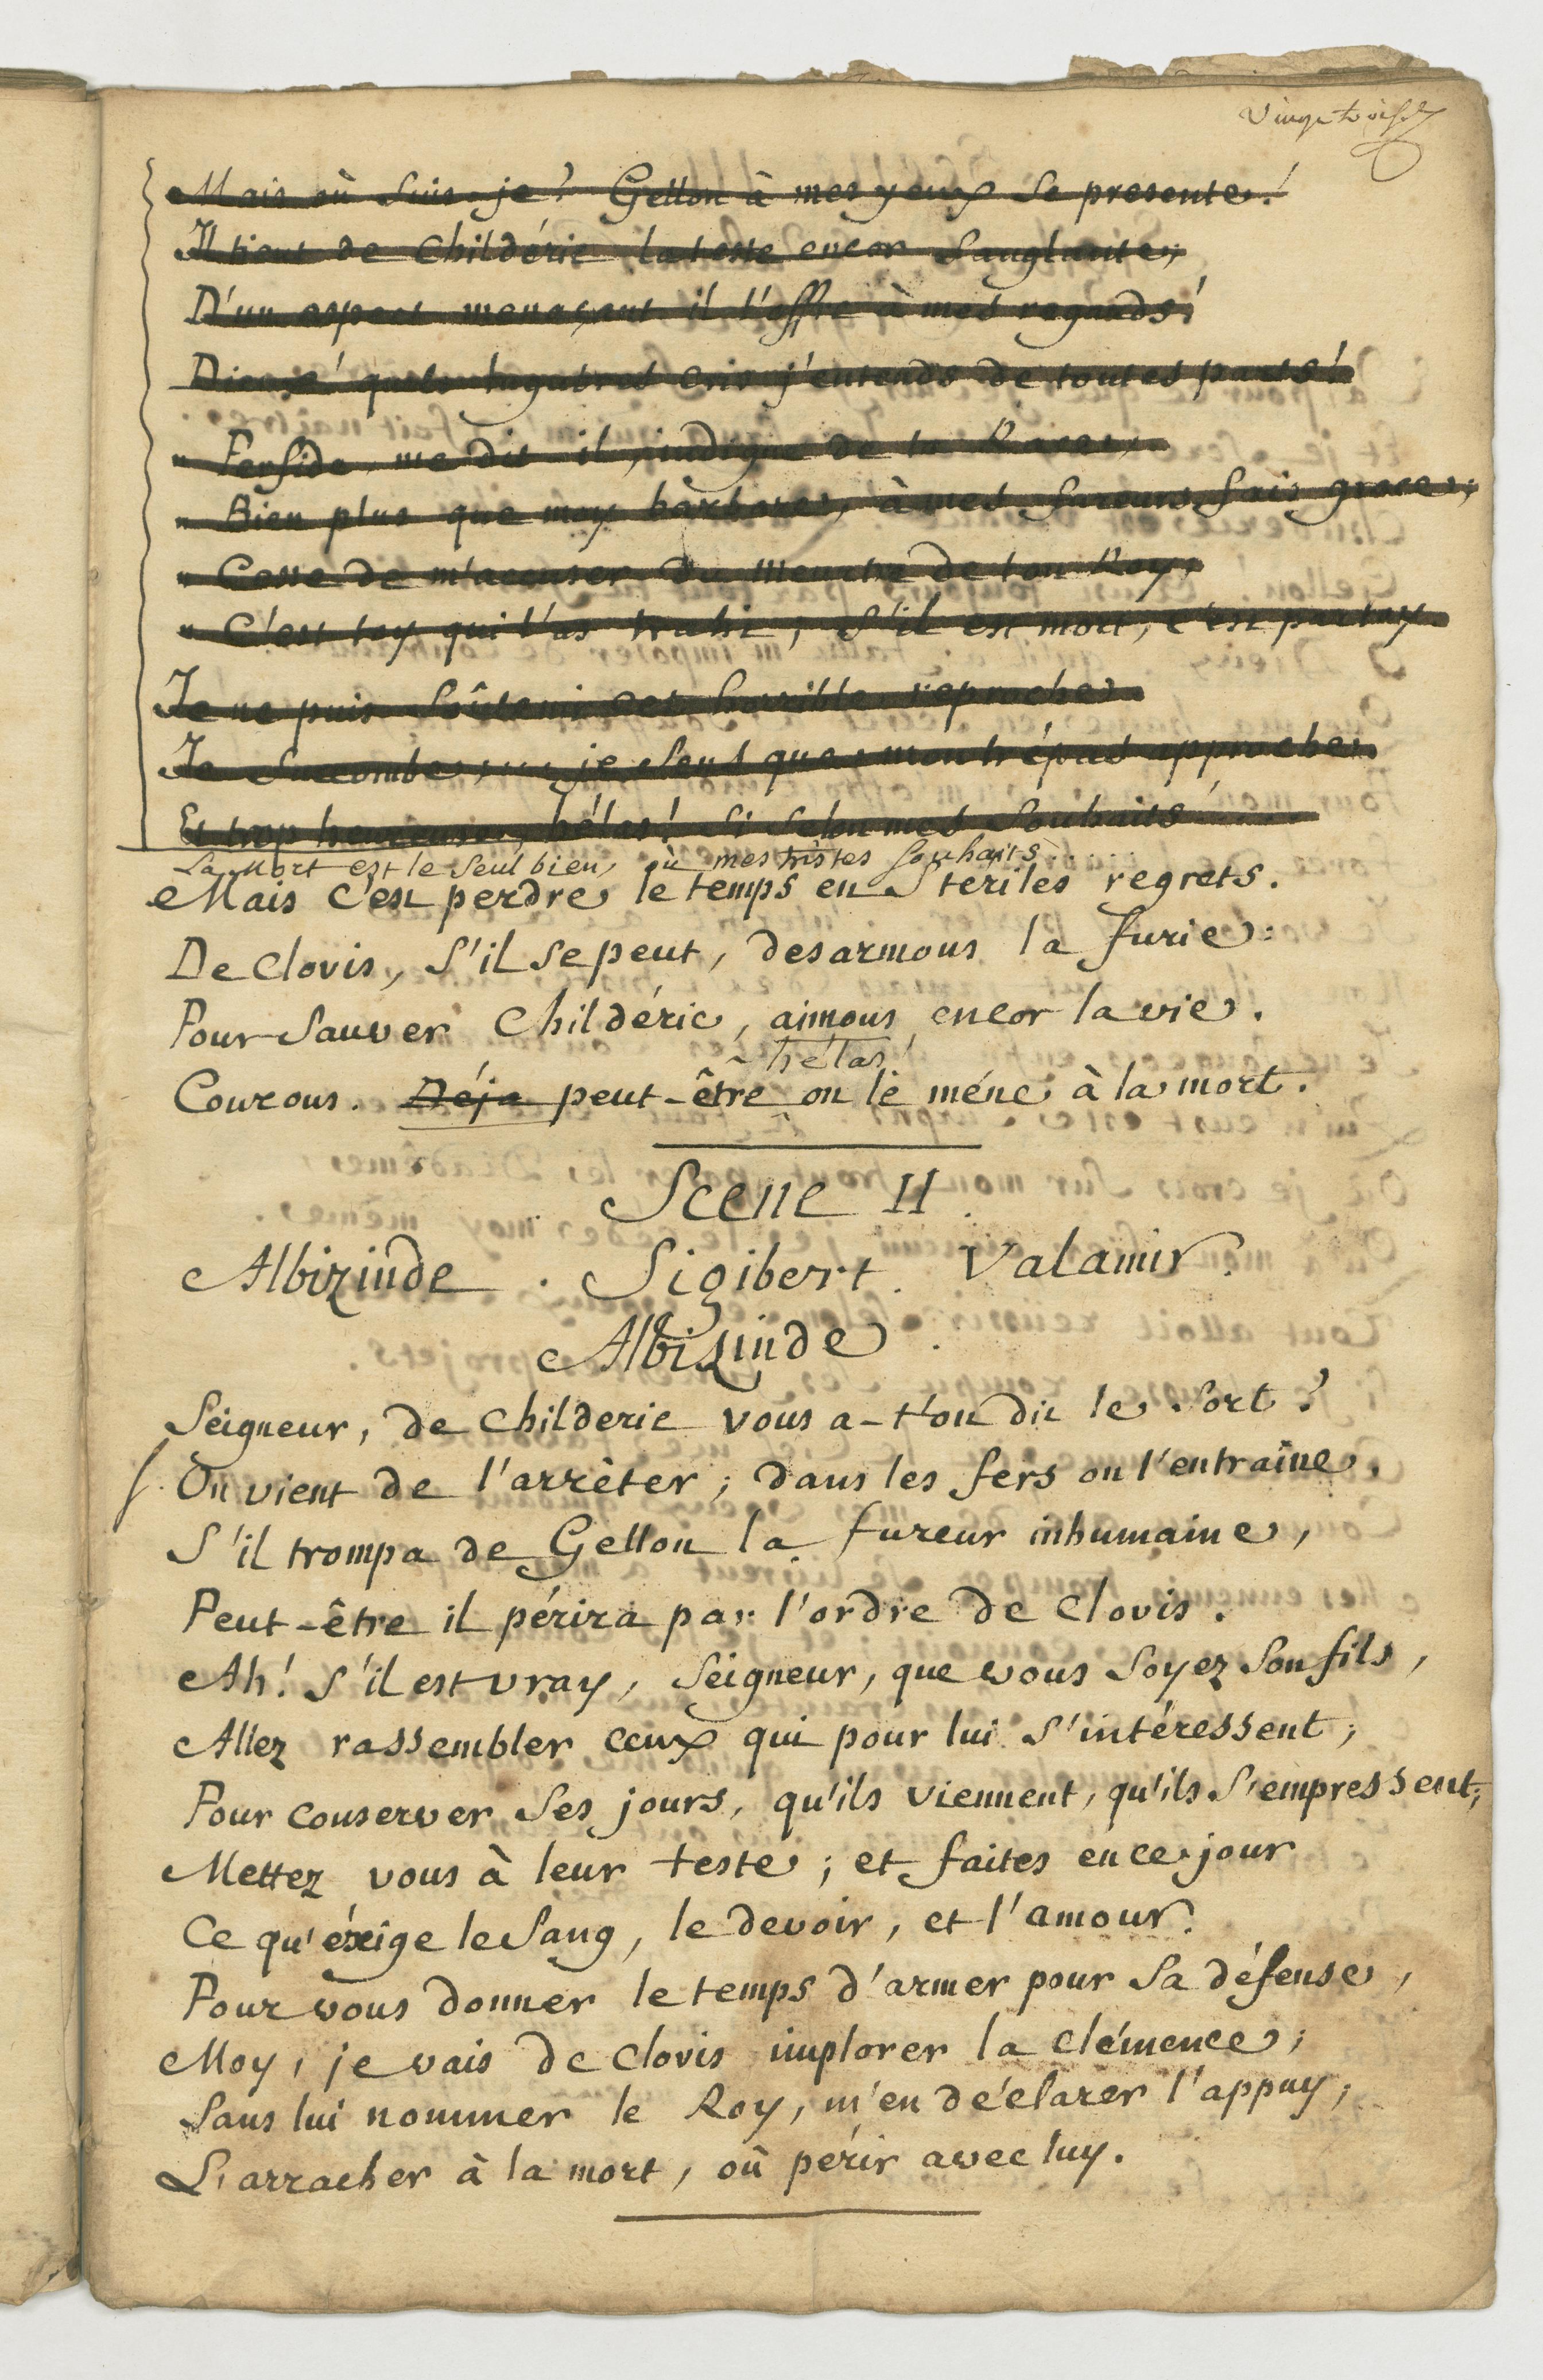 Mais où suis-je? Gellon à mes yeux se presente!
Il tient de Childéric la teste encor sanglante;
D'un aspect menaçant il l'offre à mes regards!
Dieux! quels lugubres cris j'entends de toutes parts!
" Perfide, me dit-il, indigne de ta Race,
" Bien plus que moy barbare, à mes fureurs fais grace;
" Cesse de m'accuser du meurtre de ton Roy;
" C'est toy qui l'as trahi; s'il est mort, c'est par toy.
Je ne puis soûtenir cet horrible reproche.
Je succombe.... je sens que mon trépas approche.
Et trop heureuse, hélas! si selon mes souhaits.....
La mort est le seul bien, où mes tristes souhaits....
Mais c'est perdre le temps en steriles regrets.
De Clovis, s'il se peut, desarmons la furie:
Pour sauver Childéric, aimons encor la vie.
hélas!
Courons. Déja peut-être on le méne à la mort.
Scene II.
Albizinde. Sigibert. Valamir.
Albizinde.
Seigneur, de Childeric vous a-t'on dit le sort?
On vient de l'arrêter; dans les fers on l'entraîne.
S'il trompa de Gellon la fureur inhumaine,
Peut-être il périra par l'ordre de Clovis.
Ah! s'il est vray, Seigneur, que vous soyez son fils,
Allez rassembler ceux qui pour lui s'intéressent;
Pour conserver ses jours, qu'ils viennent, qu'ils s'empressent;
Mettez vous à leur teste; et faites en ce jour
Ce qu'éxige le sang, le devoir, et l'amour.
Pour vous donner le temps d'armer pour sa défense,
Moy, je vais de Clovis implorer la clémence;
Sans lui nommer le Roy, m'en déclarer l'appuy;
L'arracher à la mort, où périr avec luy.